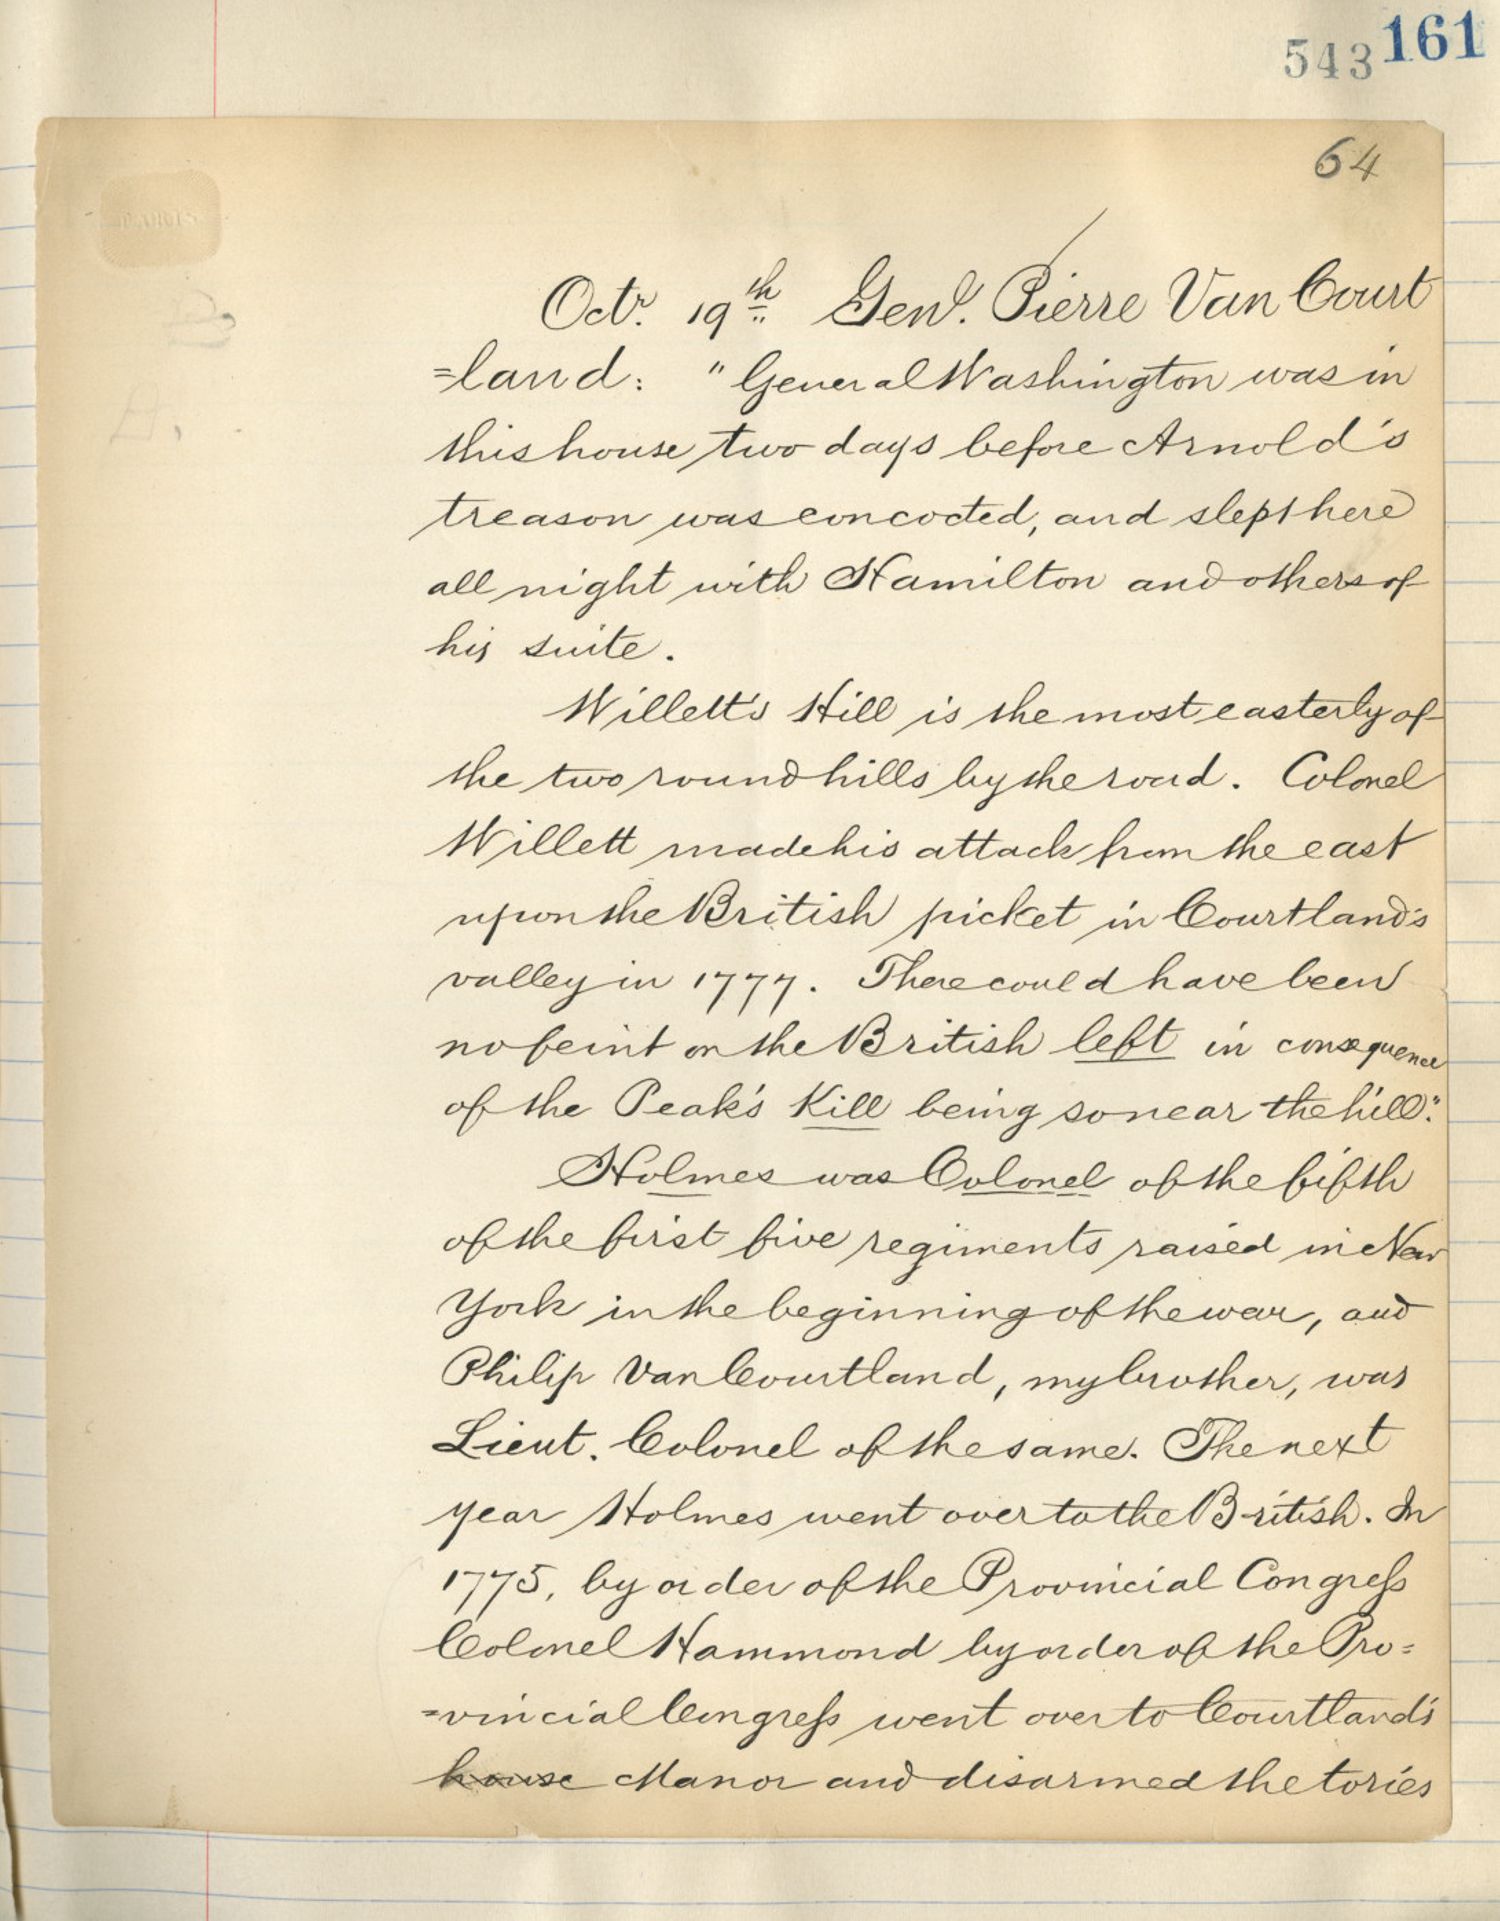 543 161
64
Octr. 19th Genl. Pierre Van Court
=land: "General Washington was in
this house two days before Arnold's
treason was concocted, and slept here
all night with Hamilton and others of
his suite.
Willett's Hill is the most easterly of
the two round hills by the road. Colonel
Willett made his attack from the east
upon the British picket in Courtland's
valley in 1777. There could have been
no feint on the British left in consequence
of the Peak's Kill being so near the hill."
Holmes was Colonel of the fifth
of the first five regiments raised in New
York in the beginning of the war, and
Philip Van Courtland, my brother, was
Lieut. Colonel of the same. The next
year Holmes went over to the British. In
1775, by order of the Provincial Congress
Colonel Hammond by order of the Pro=
=vincial Congress went over to Courtland's
house Manor and disarmed the tories